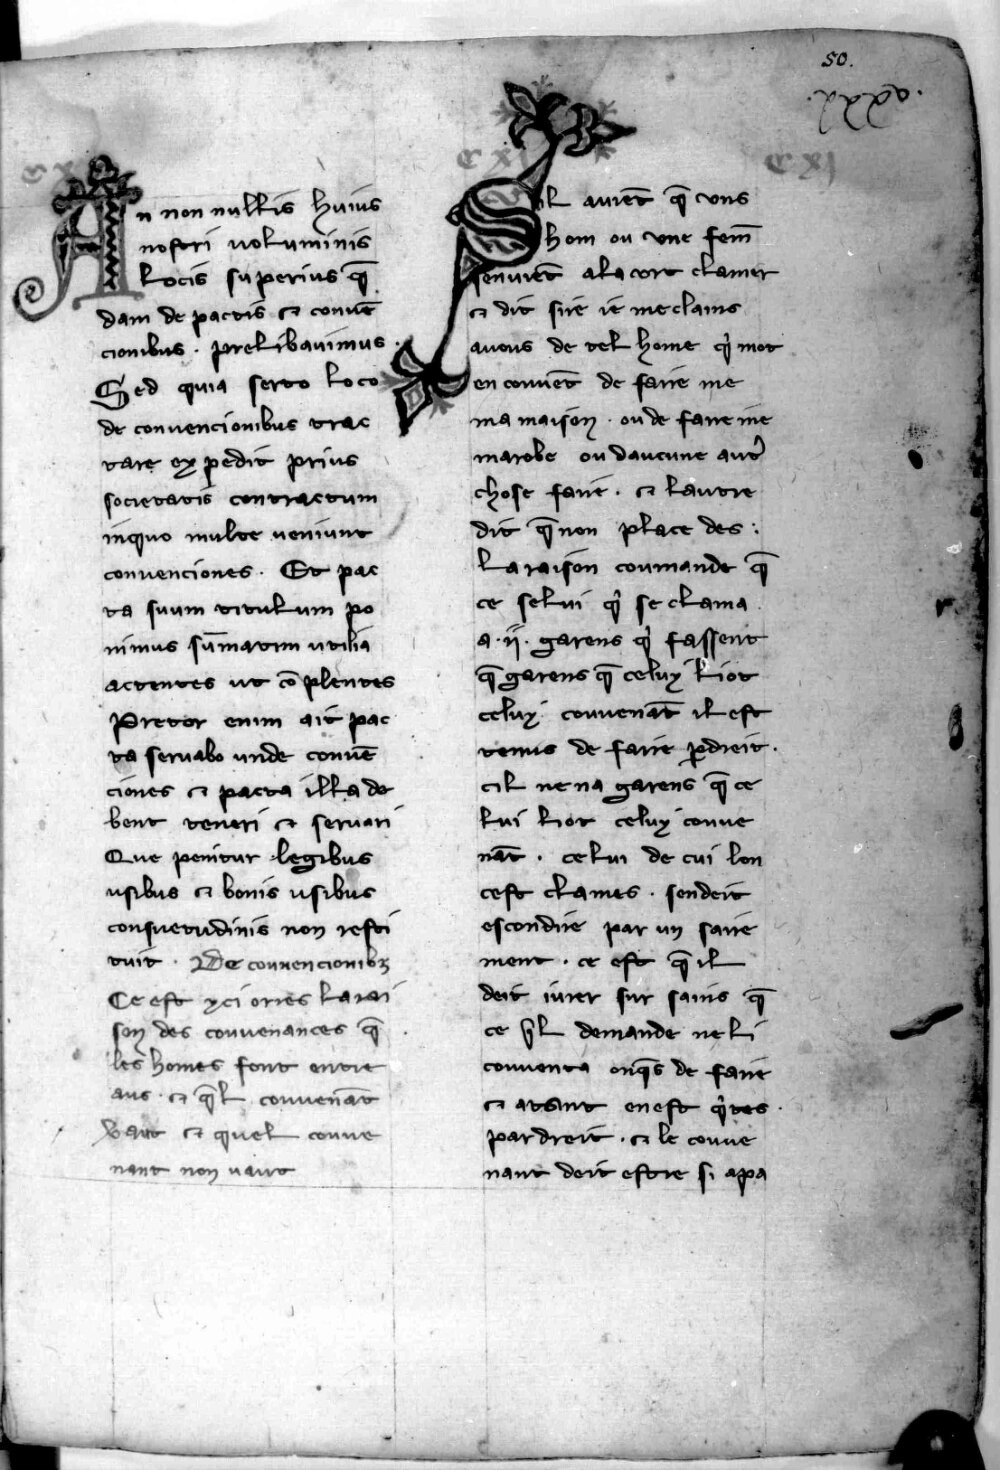 50.
xxxv.
CXI
In non nullis huius
nostri uoluminis
locis superius q̄
dam de pactis ⁊ conuē
cionibus · prelibauimus ·
Sed quia serto loco
de conuencionibus trac
tare expedit prius
societatis contractum
inquo multe ueniunt
conuenciones · Et pac
ta suum titulum po
nimus sūmatim utilia
actentes ut cōplentes
Pretor enim ait pac
ta seruabo unde conuē
ciones ⁊ pacta illa de
bent teneri ⁊ seruari
Que penitur legibus
usibus ⁊ bonis usibus
consuetudinis non resti
tuit · De conuencionibꝫ
Ce est yci ories la rai
son des conuenances q̄
les homes font entre
aus · ⁊ q̄l conuenāt
vaut ⁊ quel conue
nant non uaut
CXI
Sil auient q̄ uns
hom ou une fem̄
senuiēt ala cort clamer
⁊ dit sire ie me clains
auous de tel home qͥ mot
en conuēt de faire me
ma maison · ou de faire me
marobe ou daucune autͤ
chose faire · ⁊ lautre
dit q̄ non place des :
La raison coumande q̄
ce selui qͥ se clama
a · ii · garens qͥ fassent
q̄ garens q̄ celuy li ot
celuy conuenāt il est
tenus de faire ꝑdreit ·
cil ne na garens q̄ ce
lui li ot celuy conue
nāt · celui de cui lon
cest clames · sendeit
escondire par un saire
ment · ce est q̄ il
deit iurer sur sains q̄
ce qͥl demande ne li
conuenta onq̄s de faire
⁊ atant en est qͥtes ·
par dreit · ⁊ le conue
nant deit estre si apa